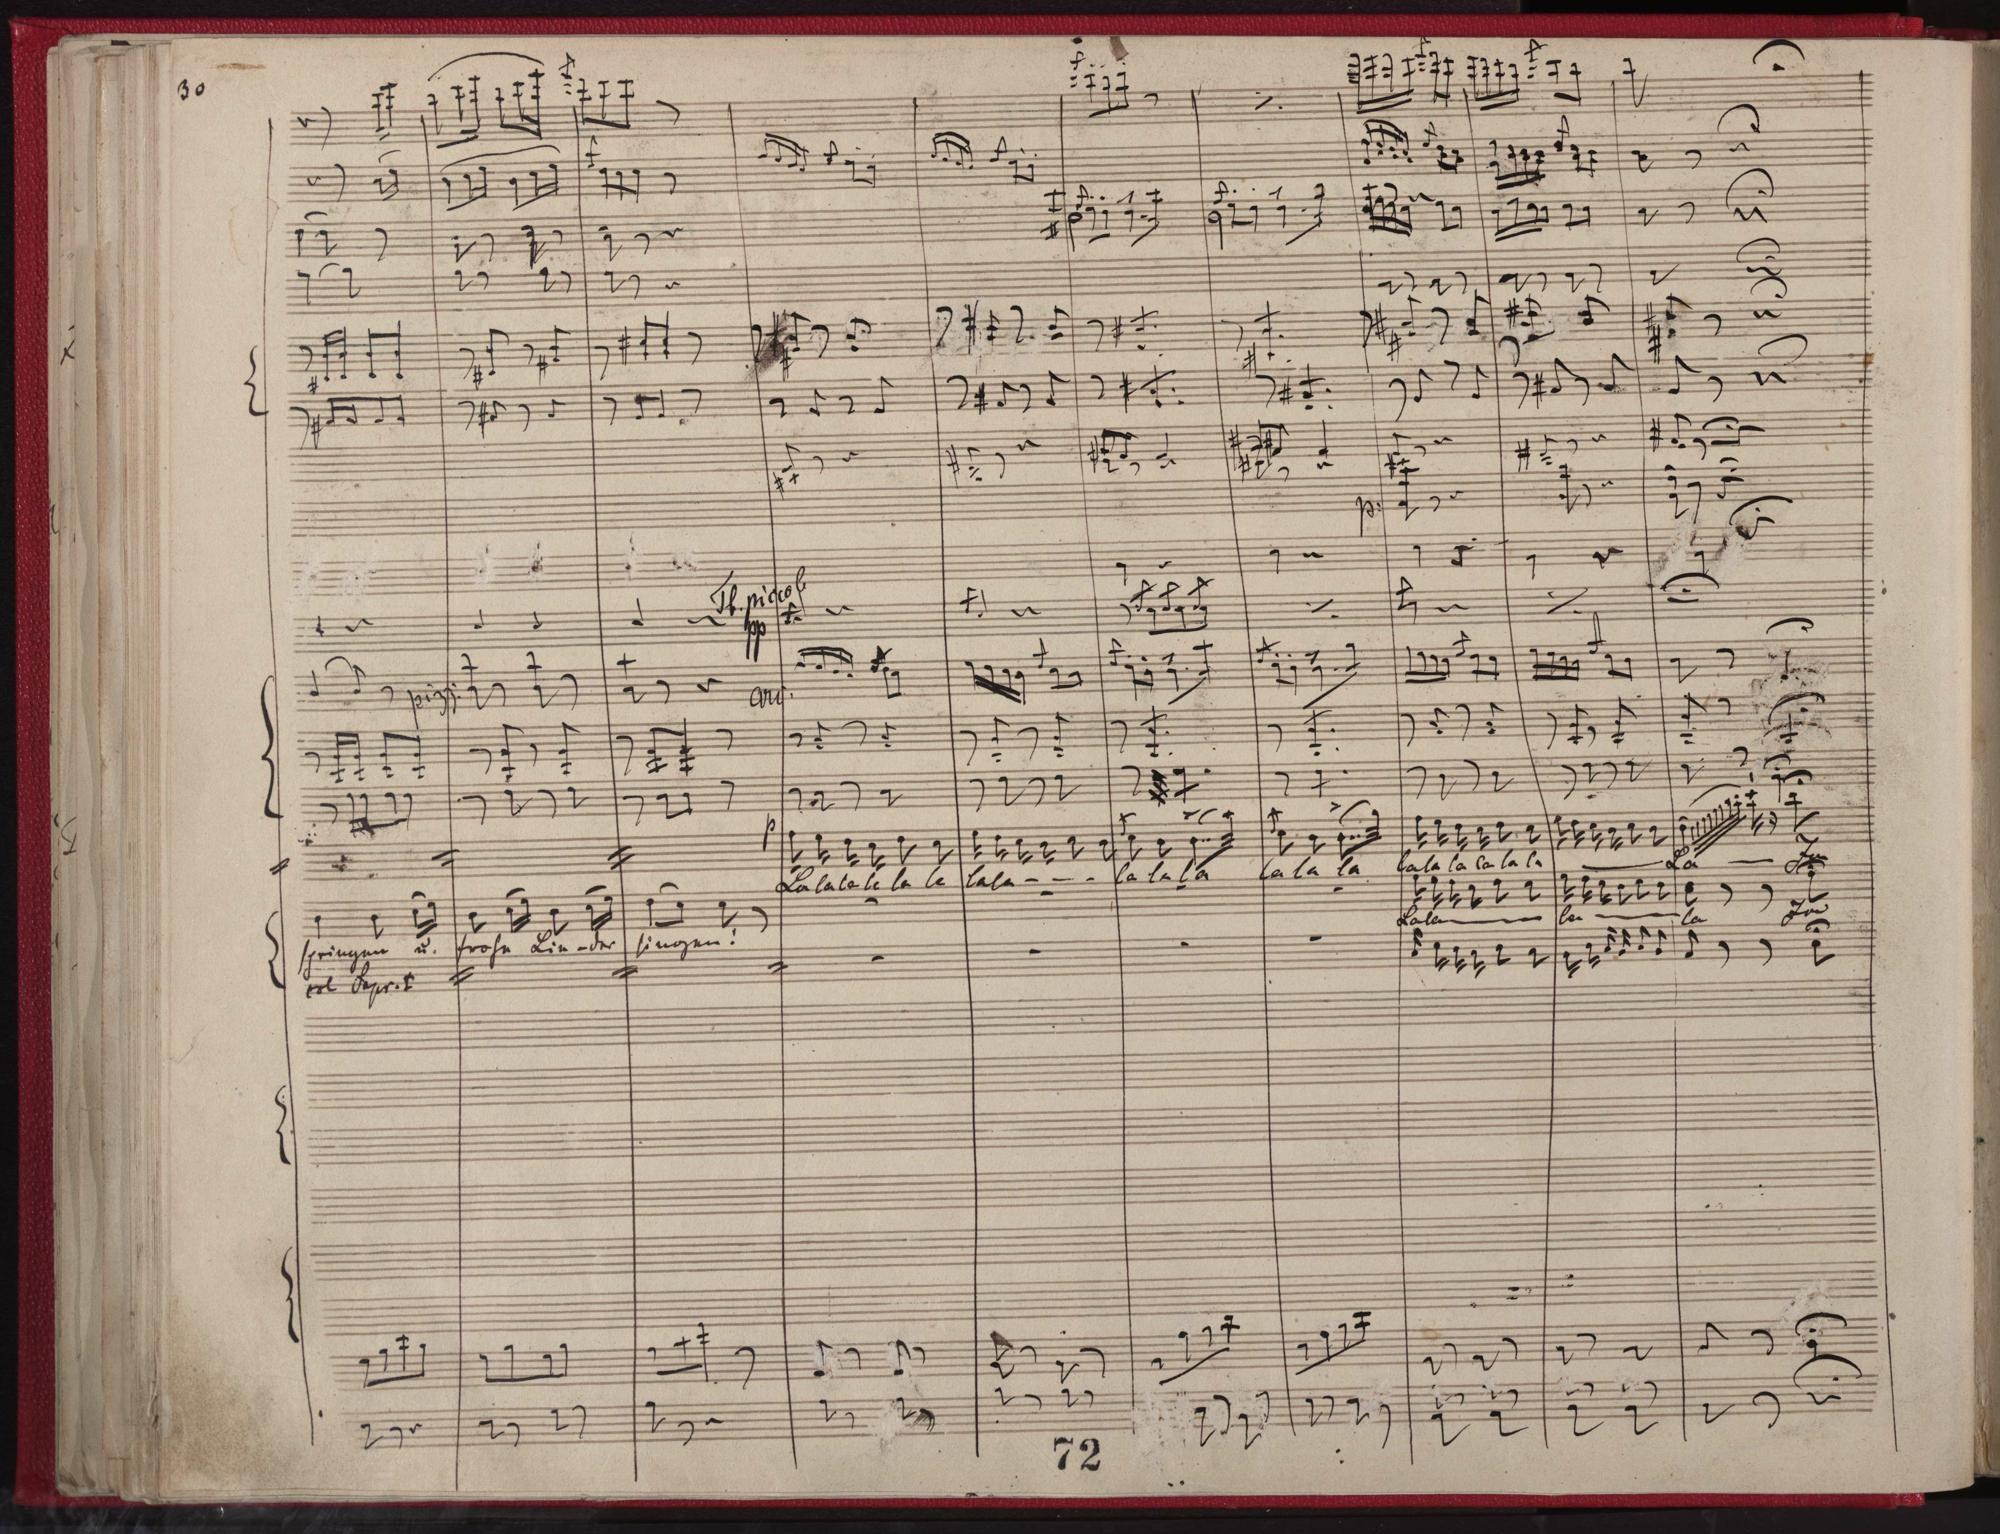 30
p:
Tb. piccolo
pp
pizz.
arc.
p
La la la la la la la la - - - la la la la la la la la la la la la La
La la la la
springen u. frohe Lie-der singen!
col Sopr. I
72